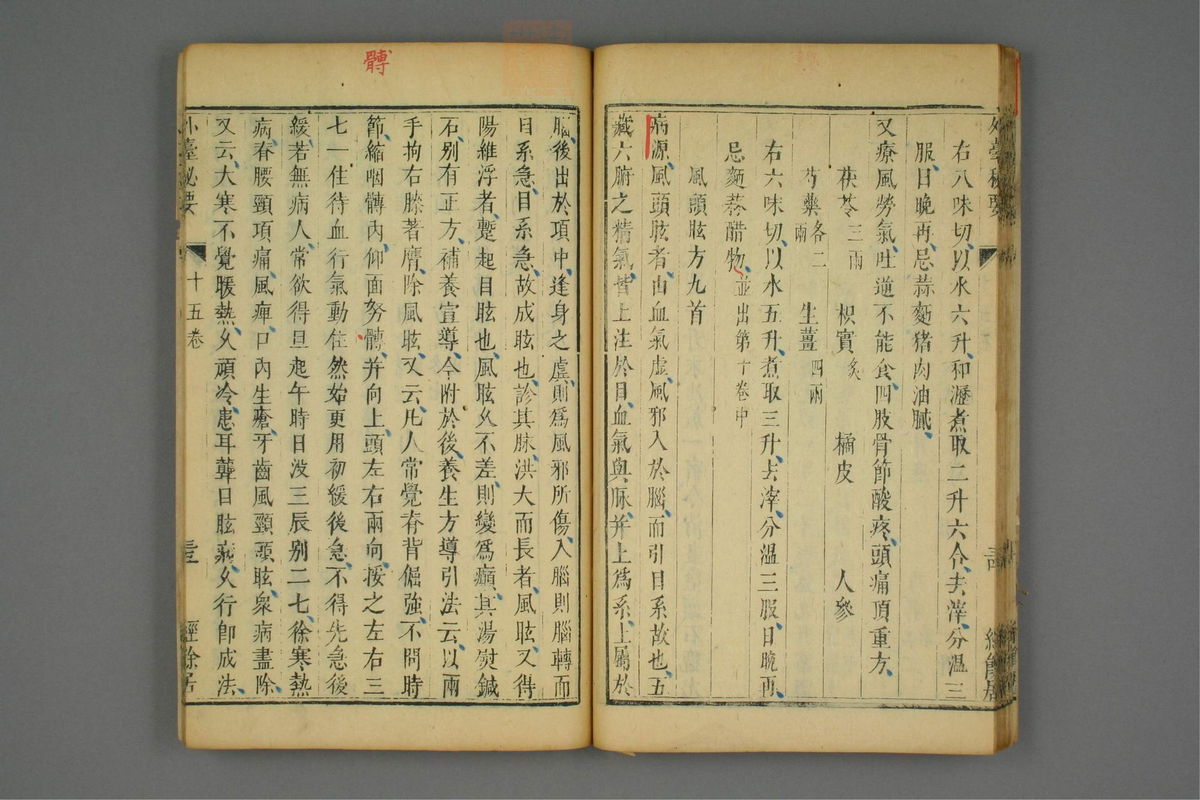 右八味切以水六升和瀝煮取二升六合去滓分溫三
服日晚再忌蒜麪猪肉油膩
又療風勞氣吐逆不能食四肢骨節酸疼頭痛頂重方
茯苓三兩 枳實炙 橘皮 人參
芍藥各二兩 生薑四兩
右六味切以水五升煮取三升去滓分溫三服日晚再
忌麪蒜醋物並出第十卷中
風頭眩方九首
病源風頭眩者由血氣虛風邪入於腦而引目系故也五
藏六腑之精氣皆上注於目血氣與脉并上爲系上屬於
腦後出於項中逢身之虛則爲風邪所傷入腦則腦轉而
目系急目系急故成眩也診其脉洪大而長者風眩又得
陽維浮者蹔起目眩也風眩久不差則變爲癲其湯熨鍼
石别有正方補養宣導今附於後養生方導引法云以兩
手拘右膝著膺除風眩又云凡人常覺脊背倔強不問時
節縮咽髆内仰面努髆并向上頭左右兩向挼之左右三
七一住待血行氣動住然始更用初緩後急不得先急後
緩若無病人常欲得旦起午時日没三辰别二七徐寒熱
病脊腰頸項痛風痺口内生瘡牙齒風頸頭眩衆病盡除
又云大寒不覺暖熱久頑冷患耳聾目眩病久行即成法
外臺秘要 十五卷 經餘居
髆